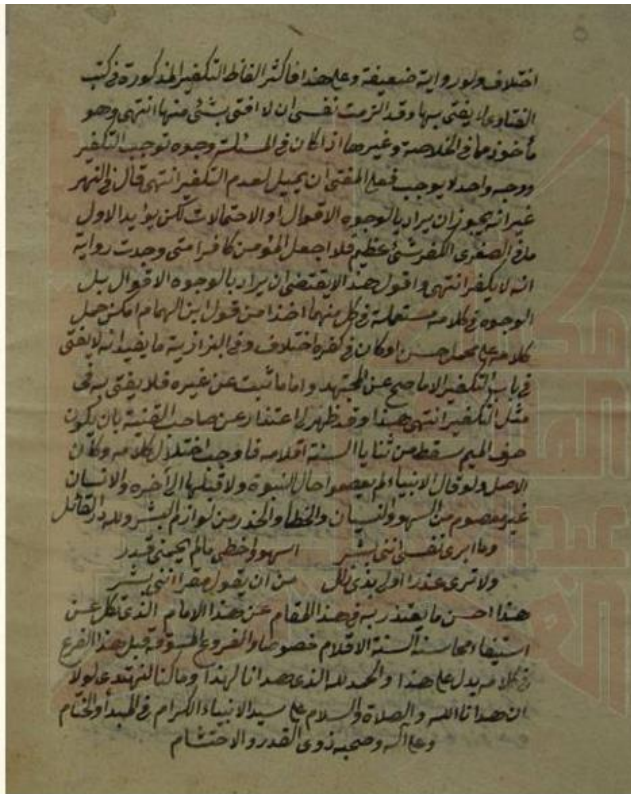 اختلاف ولو رواية ضعيفة وعلى هذا فاكثر الفاظ التكفير المذكورة في كتب
الفتاوى لا يفتى بها وقد الزمت نفسى ان لا افتى بشئ منها انتهى وهو
مأخوذ مما في الخلاصة وغيرها اذا كان في المسئلة وجوه توجب التكفير
ووجه واحد لا يوجب فعلى المفتى ان يميل لعدم التكفير انتهى قال في النهر
غير انه يجوز ان يراد بالوجوه الاقوال او الاحتمالات لكن يؤيد الاول
ما في الصغرى الكفر شئ عظيم فلا اجعل المؤمن كافرا متى وجدت رواية
انه لا يكفر انتهى واقول هذا لا يقتضى ان يراد بالوجوه الاقوال بل
الوجوه في كلامه مستعملة في كل منهما اخذا من قول ابن الهمام امكن حمل
كلامه على محمل حسن او كان في كفره اختلاف وفي البزازية ما يفيد انه لا يفتى
في باب التكفير الا ما صح عن المجتهد واما ما ثبت عن غيره فلا يفتى به في
مثل التكفير انتهى هذا وقد ظهر لى اعتذار عن صاحب القنية بان يكون
حرف الميم سقط من ثنايا السنة اقلامه فاوجب اختلال كلامه وكان
الاصل ولو قال الانبياء لم يعصموا حال النبوة ولا قبلها الى آخره والانسان
غير معصوم من السهو والنسيان والخطأ والحذر من لوازم البشر ولله در القائل
وما ابرى نفسى اننى بشر اسهو واخطى ما لم يحمنى قدر
ولا ترى عذرا اولى بذى زلل من ان يقول مقرا اننى بشر
هذا احسن ما يعتذر به في هذا المقام عن هذا الامام الذى تكل عن
استيفاء محاسنه ألسنة الاقلام خصوصا والفروع المسوقة قبل هذا الفرع
في كلامه يدل على هذا والحمد لله الذى هدانا لهذا وما كنا لنهتدى لولا
ان هدانا الله والصلاة والسلام على سيد الانبياء الكرام في المبدأ والختام
وعلى آله وصحبه ذوى القدر والاحتشام